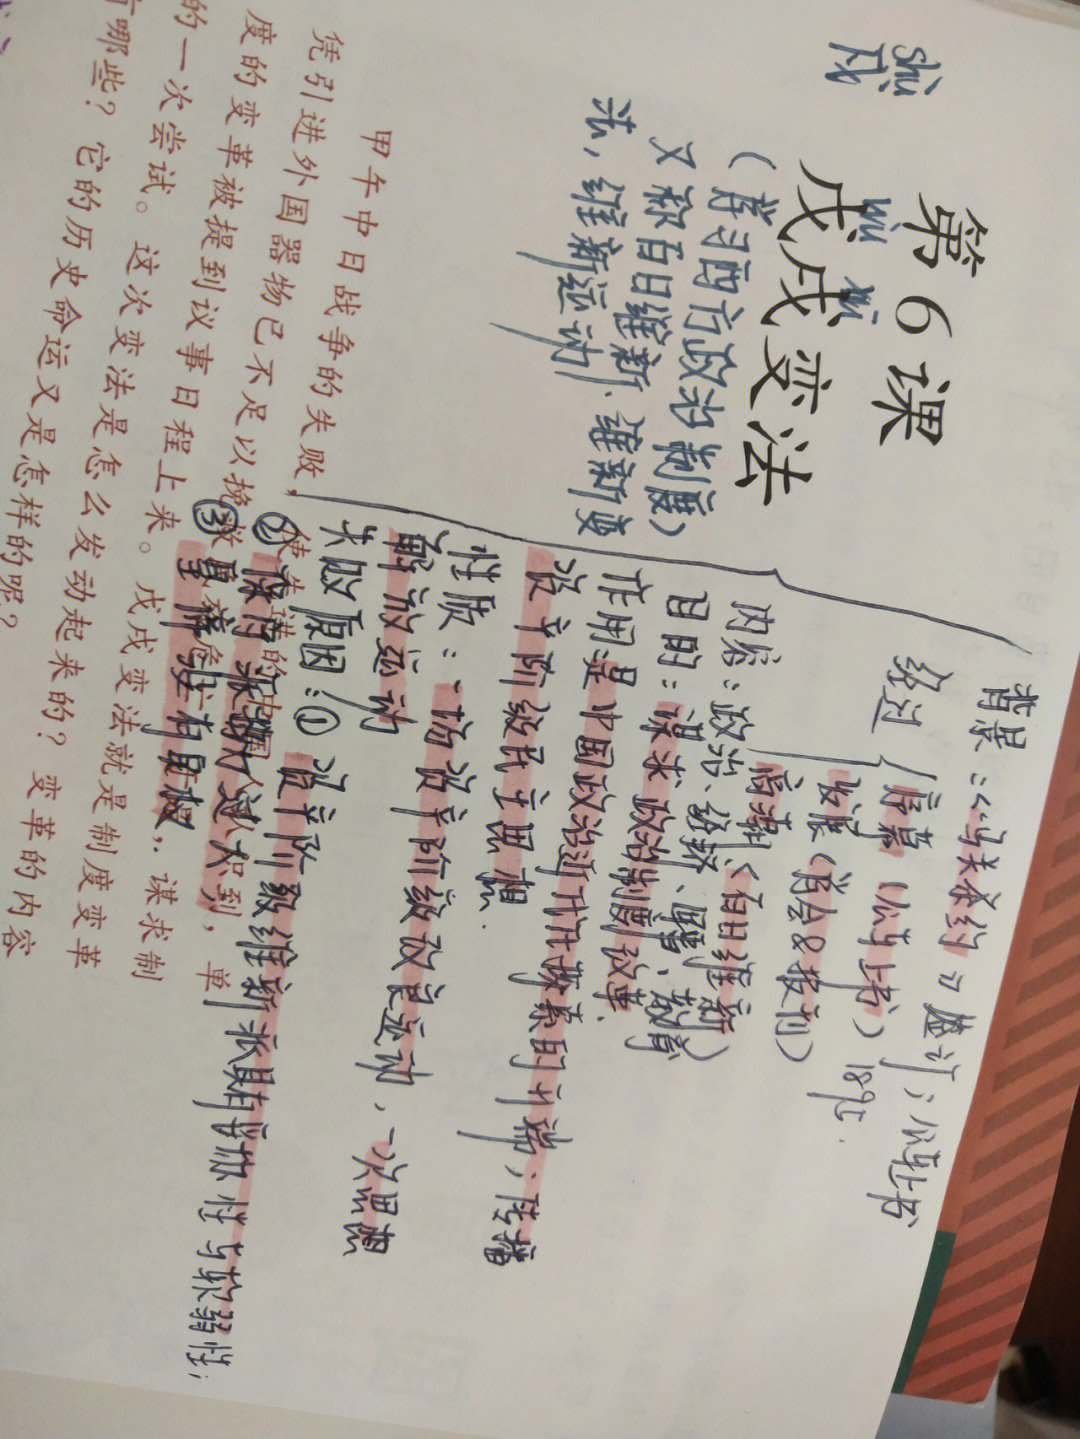 shù
戌
第6课
wù xū
戊戌变法
（学习西方政治制度）
又称百日维新、维新变
法，维新运动
背景：《马关条约》签订；公车上书
经过 序幕（公车上书）1895.
发展（学会&报刊）
高潮（百日维新）
内容：政治、经济、军事、教育
目的：谋求政治制度改革.
作用：是中国政治近代化探索的开端；传播
资产阶级民主思想.
性质：一场资产阶级改良运动，一次思想
解放运动
失败原因：①资产阶级维新派具有妥协性与软弱性；
②没有
③
甲午中日战争的失败，使先进的中国人认识到，单
凭引进外国器物已不足以挽救民族危亡，谋求制
度的变革被提到议事日程上来。戊戌变法就是制度变革
的一次尝试。这次变法是怎么发动起来的？变革的内容
有哪些？它的历史命运又是怎样的呢？